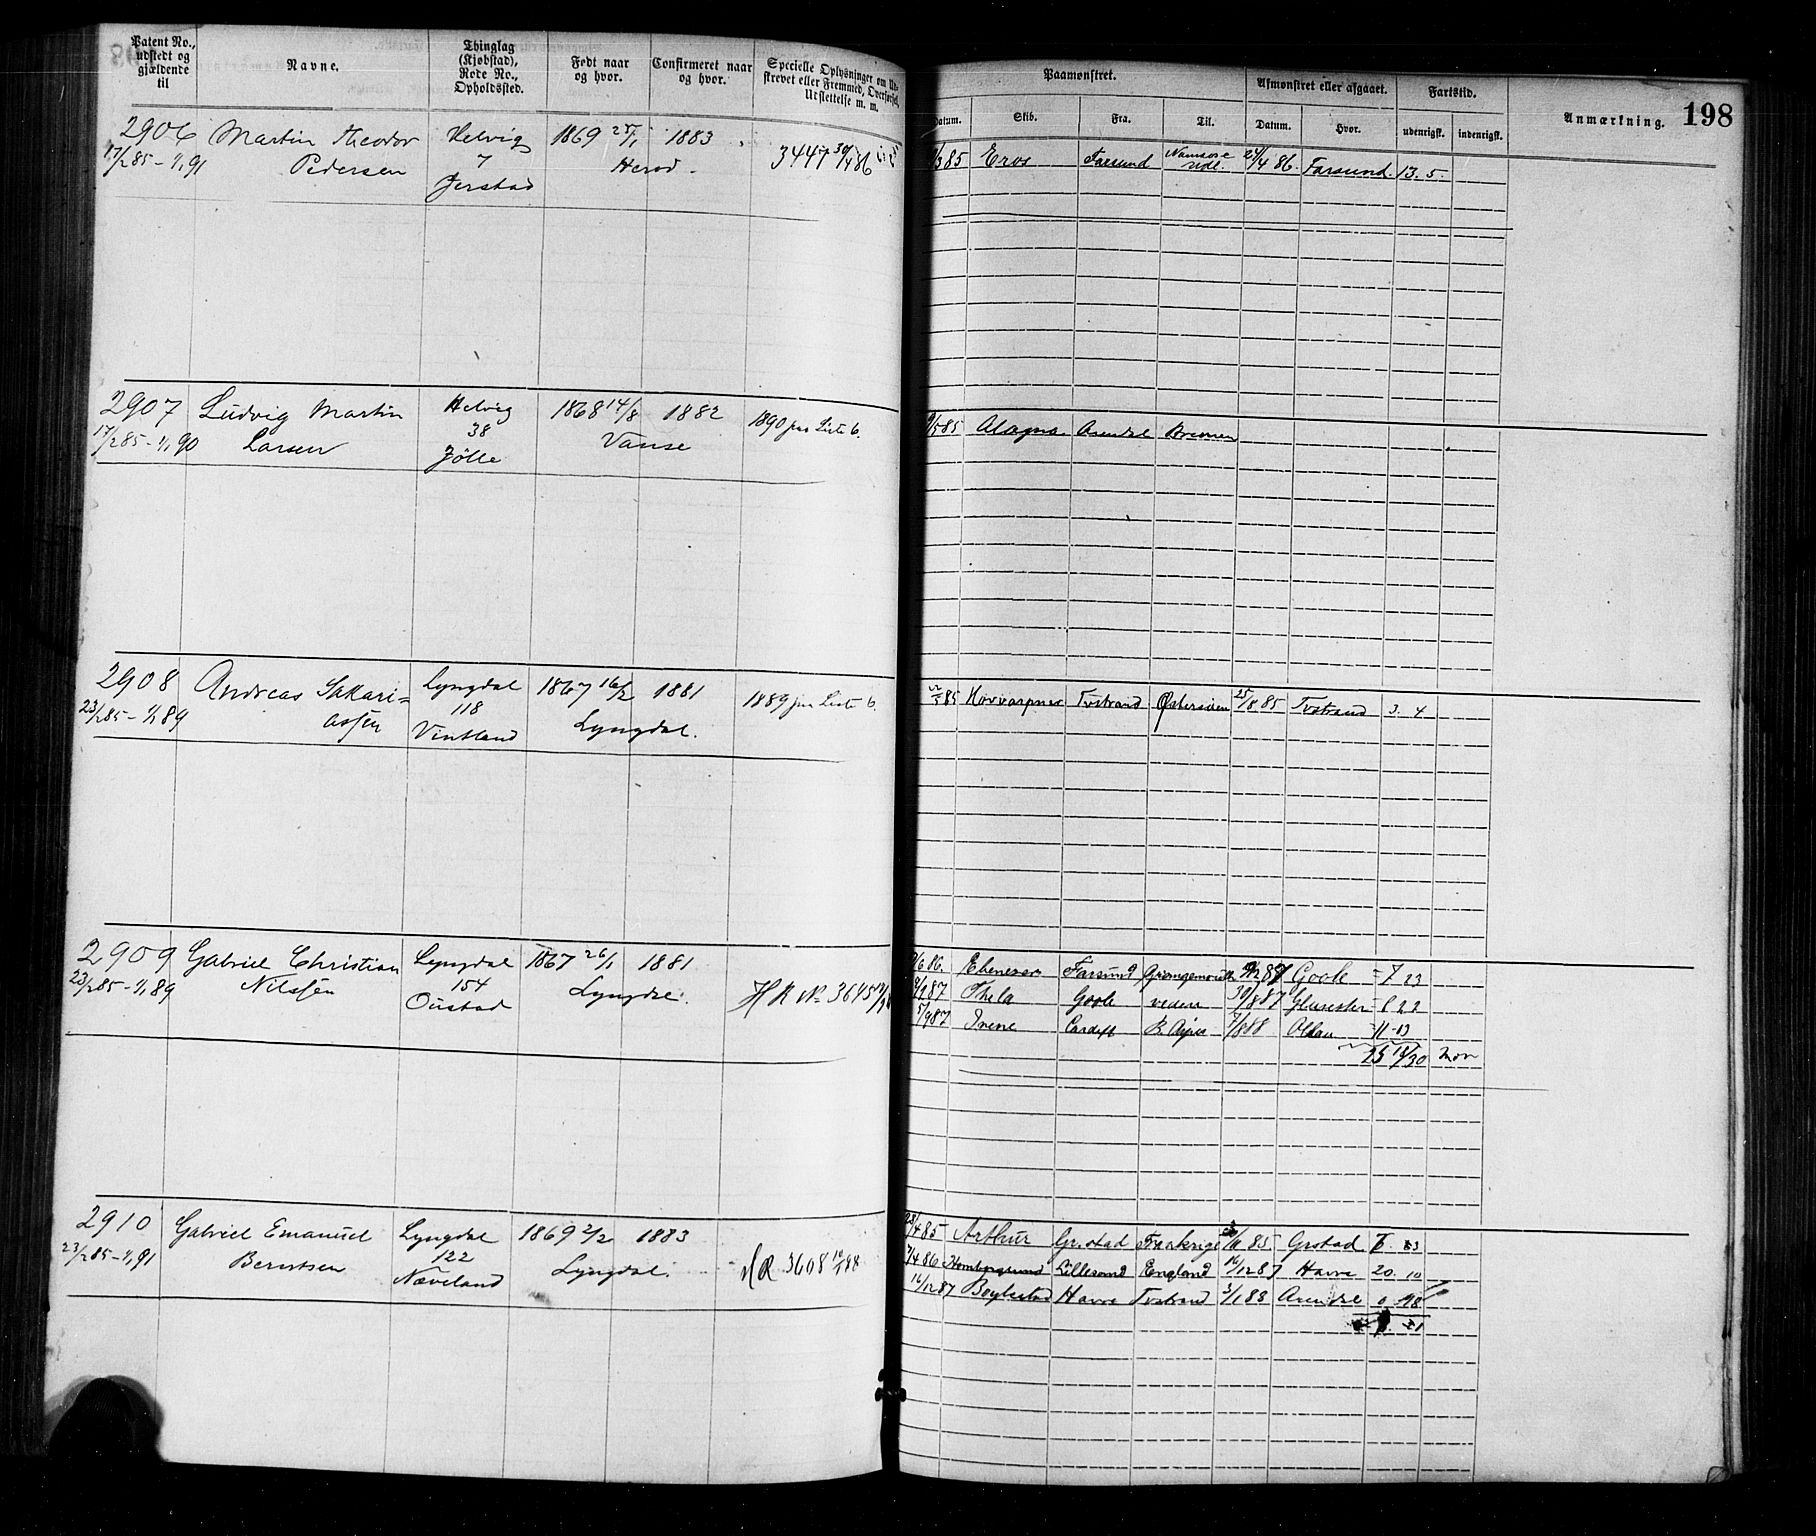 Patent No., udstedt og gjældende til
Navne.
Thinglag (Kjøbstad), Rode No., Opholdssted.
Født naar og hvor.
Confirmeret naar og hvor.
Specielle Oplysninger om Ud-
skrevet eller Fremmed, Overførsel,
Udslettelse m. m.
Paamønstret.
Afmønstret eller afgaaet.
Fartstid.
Anmærkning.
198
Datum.
Skib.
Fra.
Til.
Datum.
Hvor.
udenrigsk.
indenrigsk.
2906 Martin Theodor Helvig 1869 25/1 1883
17/2 85 - 1/1 91 Pedersen 7 Herød 3447 30/4 86
Jerstad
/3 85 Eros Farsund 24/4 86. Farsund. 13. 5.
2907 Ludvig Martin Helvig 1868 14/8 1882 1890 paa Liste 6.
17/2 85 - 1/1 90 Larsen 38 Vanse
Jølle
/5 85 Alagna Arendal Bremen
2908 Andreas Sakari= Lyngdal 1867 16/2 1881 1889 paa Liste 6.
23/2 85 - 1/1 89 assen 118 Lyngdal.
Vintland
85 Hovvarpnes Tvstrand Østersøen 25/8 85 Tvstrand 3. 4
2909 Gabriel Christian Lyngdal 1867 26/1 1881
23/2 85 - 1/1 89 Nilssen 154 Lyngdal. HR No 3645
Oustad
/6 86. Ebenezer Farsund Goole 7 23
/2 87 Thela Goole videre 30/8 87 Glucester 8 22
5/9 87 Irene Cardiff B. Ayres 7/8 88 11 13
25 18/30 Mdr
2910 Gabriel Emanuel Lyngdal 1869 2/2 1883
23/2 85 - 1/1 91 Berntsen 122 Lyngdal. HR 3608
Næveland
28/4 85 Arthur Grstad Frankrige /11 85 Grstad 6
7/4 86 Hombergsund Lillesand England 16/12 87 Havre 20. 10
16/12 87 Boylestad Havre Tvstrand 3/1 88 Arendal 0 18